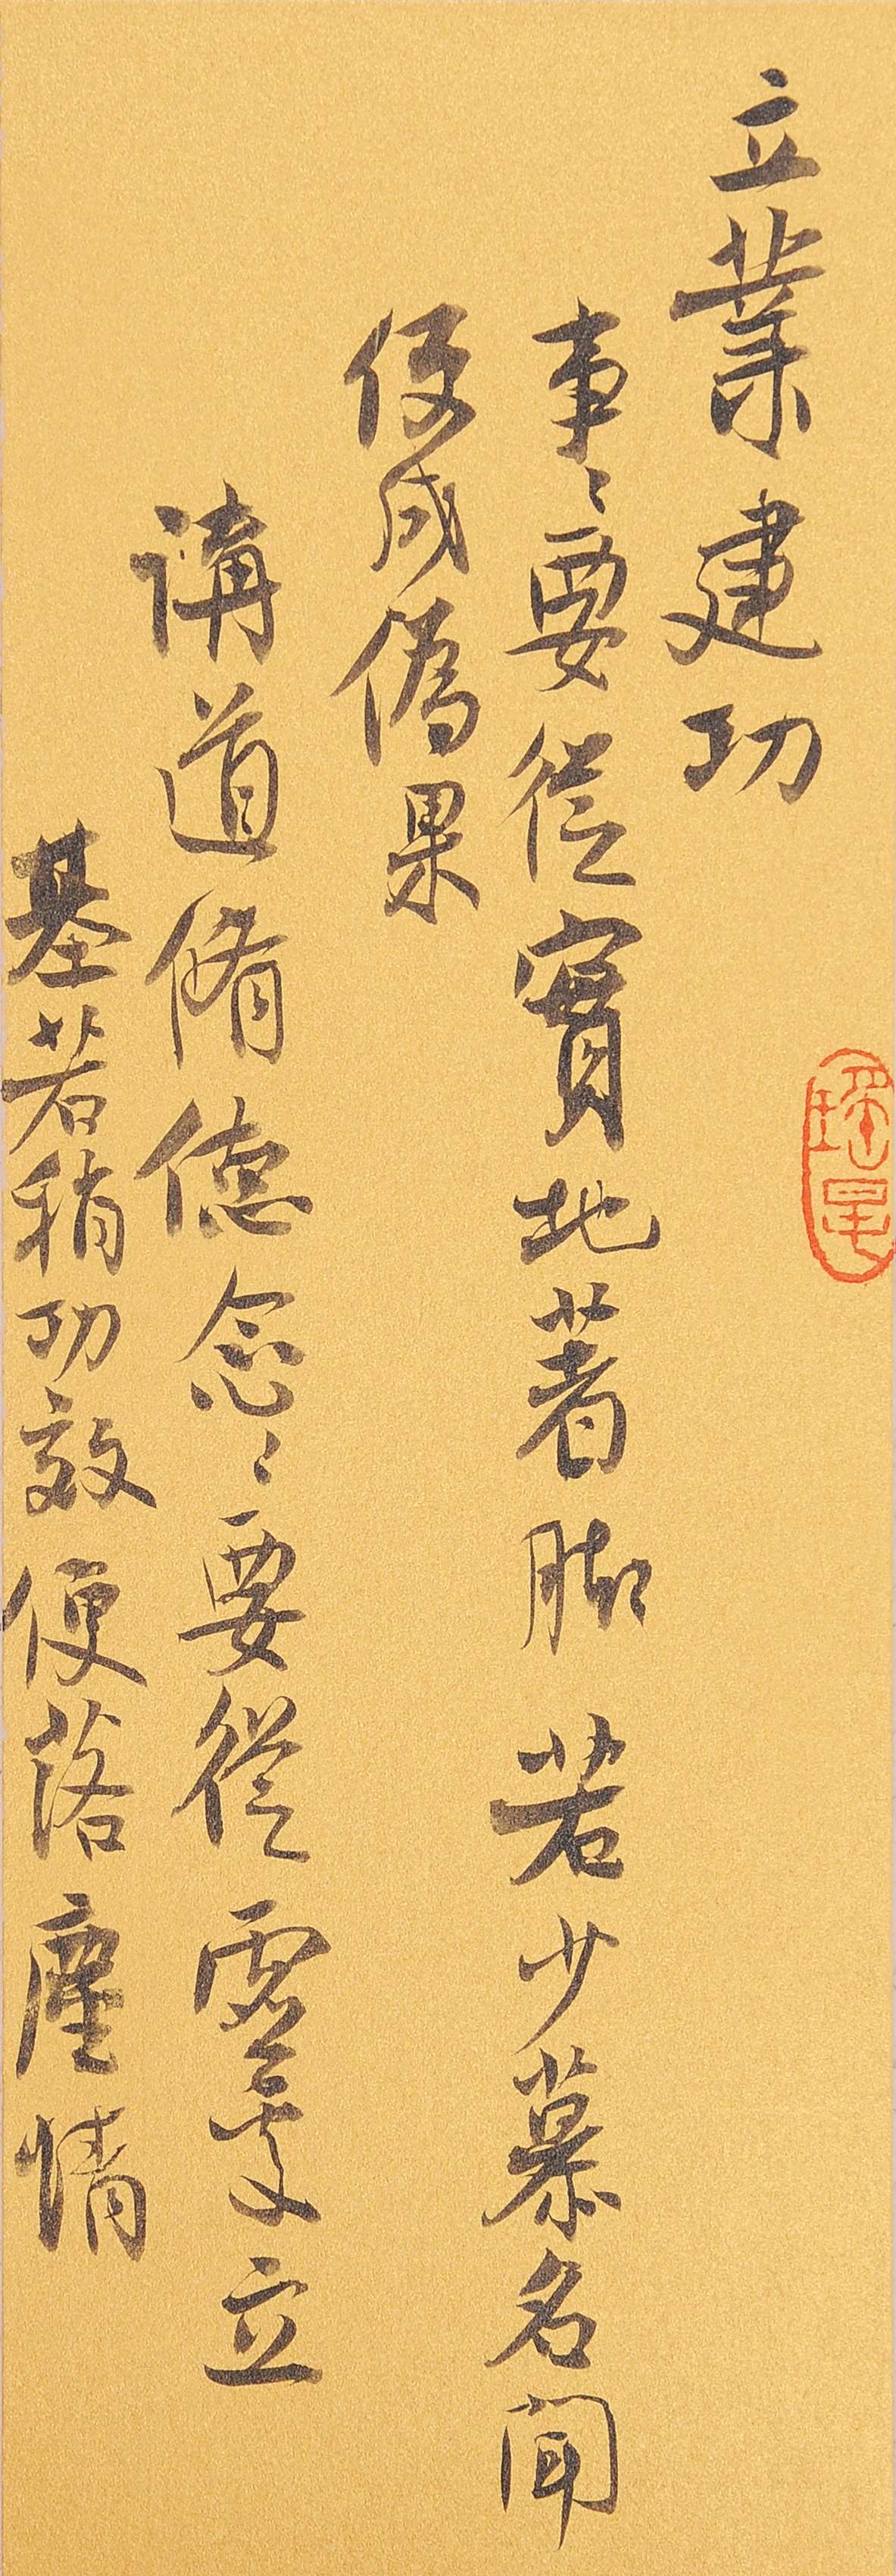 立業建功
事〻要從實地著脚若少慕名聞
便成僞果
講道脩德念〻要從虛處立
基若稍功效便落塵情